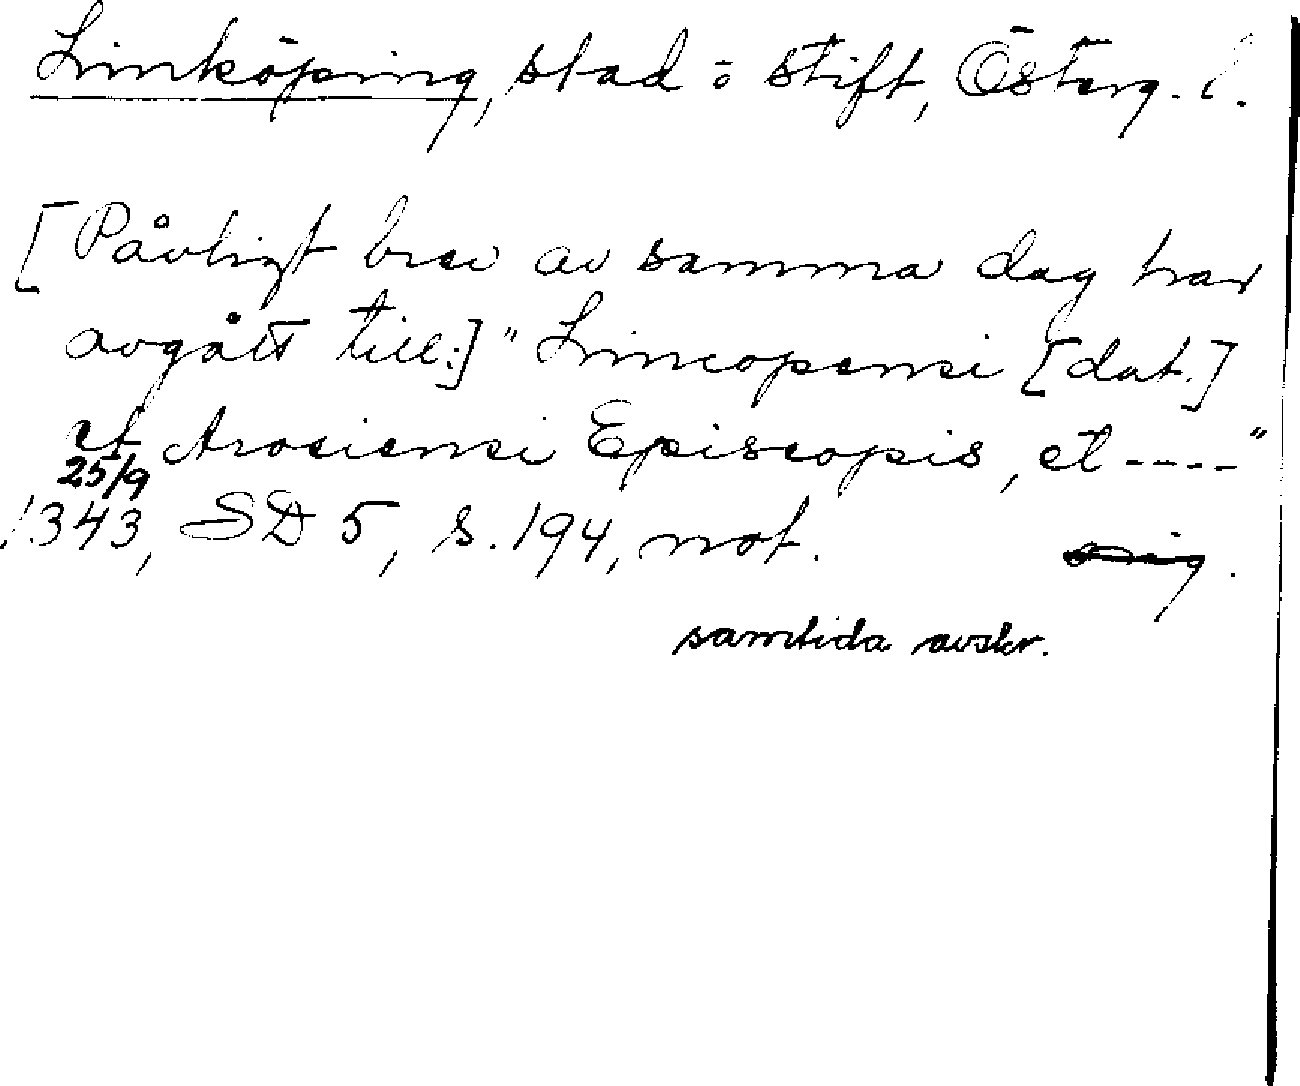 Linköping, stad o. stift, Österg. l.
[Påvligt brev av samma dag har
avgått till:] "Lincopensi [dat.]
et Arosiensi Episcopis, et ----"
25/9
1343, SD 5, s. 194, not. orig.
samtida avskr.